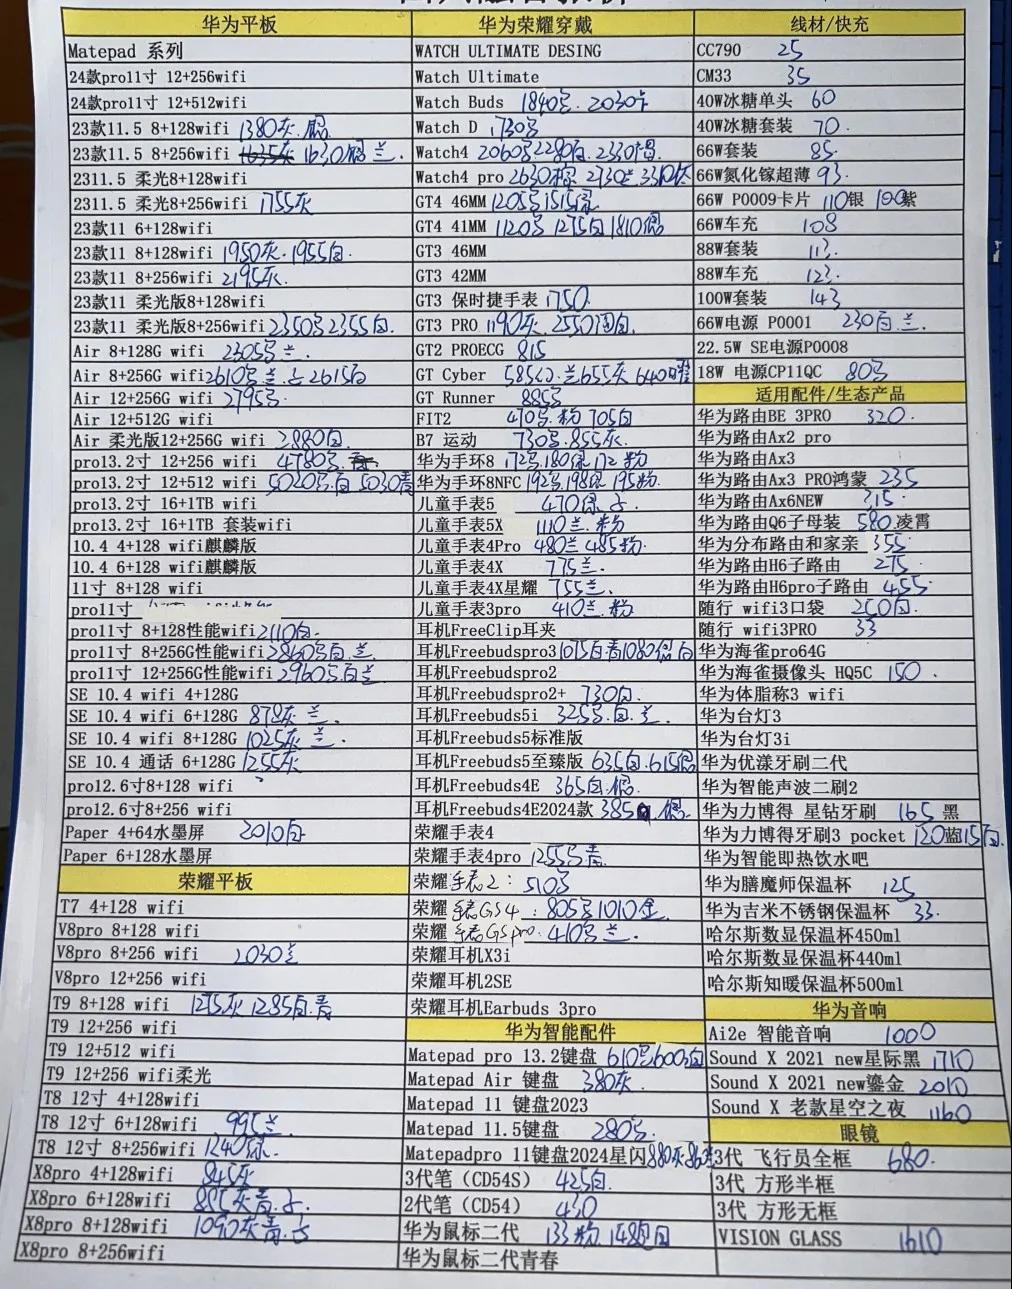 华为平板
Matepad 系列
24款pro11寸 12+256wifi
24款pro11寸 12+512wifi
23款11.5 8+128wifi 1380灰.
23款11.5 8+256wifi 1630 兰.
2311.5 柔光8+128wifi
2311.5 柔光8+256wifi 1755灰
23款11 6+128wifi
23款11 8+128wifi 1950灰.1955白.
23款11 8+256wifi 2195灰.
23款11 柔光版8+128wifi
23款11 柔光版8+256wifi 2350 2355白.
Air 8+128G wifi 2305 兰.
Air 8+256G wifi 2610 兰. 2615白
Air 12+256G wifi 2795
Air 12+512G wifi
Air 柔光版12+256G wifi 2880白.
pro13.2寸 12+256 wifi 4780
pro13.2寸 12+512 wifi 5020 白 5030青
pro13.2寸 16+1TB wifi
pro13.2寸 16+1TB 套装wifi
10.4 4+128 wifi麒麟版
10.4 6+128 wifi麒麟版
11寸 8+128 wifi
pro11寸
pro11寸 8+128性能wifi 2110白.
pro11寸 8+256G性能wifi 2860 白.兰.
pro11寸 12+256G性能wifi 2960 白兰
SE 10.4 wifi 4+128G
SE 10.4 wifi 6+128G 878灰 兰.
SE 10.4 wifi 8+128G 1025灰 兰.
SE 10.4 通话 6+128G 1255灰
pro12.6寸8+128 wifi
pro12.6寸8+256 wifi
Paper 4+64水墨屏 2010白
Paper 6+128水墨屏
荣耀平板
T7 4+128 wifi
V8pro 8+128 wifi
V8pro 8+256 wifi 2030兰
V8pro 12+256 wifi
T9 8+128 wifi 1275灰 1285白.青
T9 12+256 wifi
T9 12+512 wifi
T9 12+256 wifi柔光
T8 12寸 4+128wifi
T8 12寸 6+128wifi 995兰
T8 12寸 8+256wifi 1240
X8pro 4+128wifi 845灰
X8pro 6+128wifi 885灰青.
X8pro 8+128wifi 1090灰青.
X8pro 8+256wifi
华为荣耀穿戴
WATCH ULTIMATE DESING
Watch Ultimate
Watch Buds 1840 . 2030
Watch D 1730
Watch4 2060 2280白. 2330
Watch4 pro 2630 2730兰.
GT4 46MM 1205 1515绿
GT4 41MM 1120 1275白 1810
GT3 46MM
GT3 42MM
GT3 保时捷手表 1750
GT3 PRO 1190灰. 2550
GT2 PROECG 815
GT Cyber 585 .兰655灰 640
GT Runner 885
FIT2 470 .粉 705白
B7 运动 730 .855灰.
华为手环8 172 .180绿 172 粉
华为手环8NFC 192 .198绿 195粉.
儿童手表5 470绿
儿童手表5X 1110兰.粉
儿童手表4Pro 480兰 485粉.
儿童手表4X 775兰.
儿童手表4X星耀 755兰.
儿童手表3pro 410兰.粉
耳机FreeClip耳夹
耳机Freebudspro3 1075白青1080 白
耳机Freebudspro2
耳机Freebudspro2+ 730白.
耳机Freebuds5i 325 .白.兰.
耳机Freebuds5标准版
耳机Freebuds5至臻版 635白.615
耳机Freebuds4E 365白.
耳机Freebuds4E2024款 385
荣耀手表4
荣耀手表4pro 1255 青
荣耀 手表2: 510
荣耀 手表GS4 : 805 1010金
荣耀 手表GSpro. 410 兰.
荣耀耳机X3i
荣耀耳机2SE
荣耀耳机Earbuds 3pro
华为智能配件
Matepad pro 13.2键盘 610 600 白
Matepad Air 键盘 380灰.
Matepad 11 键盘2023
Matepad 11.5键盘 280
Matepadpro 11键盘2024星闪 880灰
3代笔（CD54S） 425白.
2代笔（CD54) 430
华为鼠标二代 133粉 148 白
华为鼠标二代青春
线材/快充
CC790 25
CM33 35
40W冰糖单头 60
40W冰糖套装 70.
66W套装 85.
66W氮化镓超薄 93.
66W P0009卡片 110银 100紫
66W车充 108
88W套装 113.
88W车充 123.
100W套装 143
66W电源 P0001 230白.兰.
22.5W SE电源P0008
18W 电源CP11QC 80
适用配件/生态产品
华为路由BE 3PRO 320.
华为路由Ax2 pro
华为路由Ax3
华为路由Ax3 PRO鸿蒙 235
华为路由Ax6NEW 315.
华为路由Q6子母装 580.凌霄
华为分布路由和家亲 355
华为路由H6子路由 275
华为路由H6pro子路由 455
随行 wifi3口袋 250白.
随行 wifi3PRO 33
华为海雀pro64G
华为海雀摄像头 HQ5C 150 .
华为体脂称3 wifi
华为台灯3
华为台灯3i
华为优漾牙刷二代
华为智能声波二刷2
华为力博得 星钻牙刷 165 黑
华为力博得牙刷3 pocket 120蓝15白.
华为智能即热饮水吧
华为膳魔师保温杯 125
华为吉米不锈钢保温杯 33.
哈尔斯数显保温杯450ml
哈尔斯数显保温杯440ml
哈尔斯知暖保温杯500ml
华为音响
Ai2e 智能音响 1000
Sound X 2021 new星际黑 1710
Sound X 2021 new鎏金 2010
Sound X 老款星空之夜 1160
眼镜
3代 飞行员全框 680.
3代 方形半框
3代 方形无框
VISION GLASS 1610